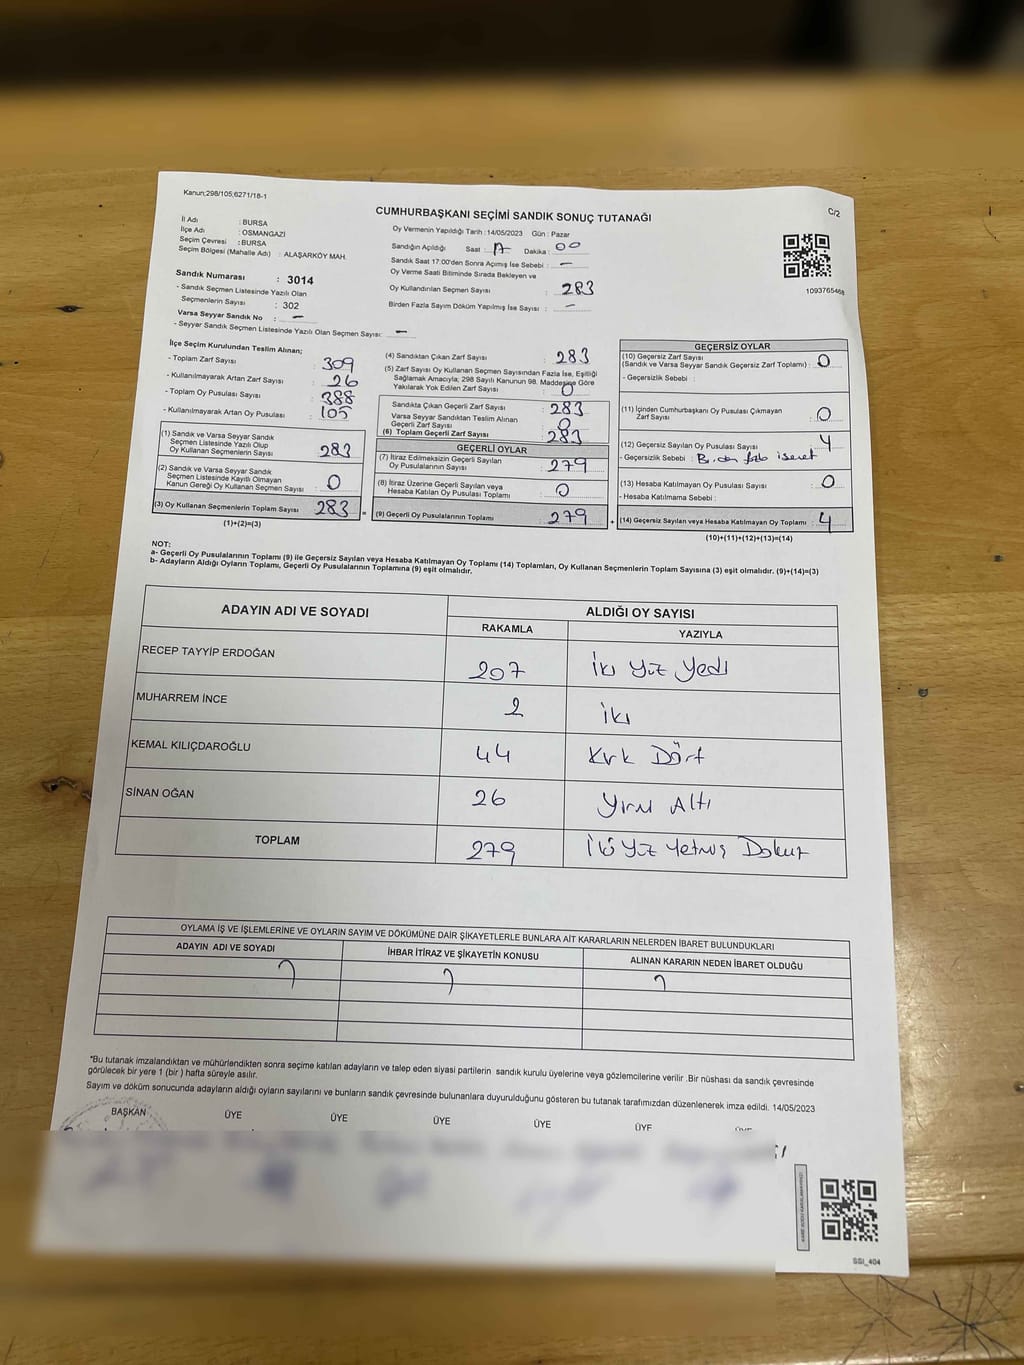 Kanun;298/105;6271/18-1
CUMHURBAŞKANI SEÇİMİ SANDIK SONUÇ TUTANAĞI
C/2
İl Adı : BURSA
İlçe Adı : OSMANGAZİ
Seçim Çevresi : BURSA
Seçim Bölgesi (Mahalle Adı) : ALAŞARKÖY MAH.
Sandık Numarası : 3014
- Sandık Seçmen Listesinde Yazılı Olan
Seçmenlerin Sayısı : 302
Varsa Seyyar Sandık No : –
- Seyyar Sandık Seçmen Listesinde Yazılı Olan Seçmen Sayısı: –
Oy Vermenin Yapıldığı Tarih : 14/05/2023 Gün : Pazar
Sandığın Açıldığı Saat : 17 Dakika : 00
Sandık Saat 17:00'den Sonra Açılmış İse Sebebi : –
Oy Verme Saati Bitiminde Sırada Bekleyen ve
Oy Kullandırılan Seçmen Sayısı : 283
Birden Fazla Sayım Döküm Yapılmış İse Sayısı : –
1093765468
İlçe Seçim Kurulundan Teslim Alınan;
- Toplam Zarf Sayısı : 309
- Kullanılmayarak Artan Zarf Sayısı : 26
- Toplam Oy Pusulası Sayısı : 388
- Kullanılmayarak Artan Oy Pusulası : 105
(1) Sandık ve Varsa Seyyar Sandık
Seçmen Listesinde Yazılı Olup
Oy Kullanan Seçmenlerin Sayısı : 283
(2) Sandık ve Varsa Seyyar Sandık
Seçmen Listesinde Kayıtlı Olmayan
Kanun Gereği Oy Kullanan Seçmen Sayısı : 0
(3) Oy Kullanan Seçmenlerin Toplam Sayısı : 283 =
(1)+(2)=(3)
(4) Sandıktan Çıkan Zarf Sayısı : 283
(5) Zarf Sayısı Oy Kullanan Seçmen Sayısından Fazla İse, Eşitliği
Sağlamak Amacıyla; 298 Sayılı Kanunun 98. Maddesine Göre
Yakılarak Yok Edilen Zarf Sayısı : 0
Sandıkta Çıkan Geçerli Zarf Sayısı : 283
Varsa Seyyar Sandıktan Teslim Alınan
Geçerli Zarf Sayısı : 0
(6) Toplam Geçerli Zarf Sayısı : 283
GEÇERLİ OYLAR
(7) İtiraz Edilmeksizin Geçerli Sayılan
Oy Pusulalarının Sayısı : 279
(8) İtiraz Üzerine Geçerli Sayılan veya
Hesaba Katılan Oy Pusulası Toplamı : 0
(9) Geçerli Oy Pusulalarının Toplamı : 279 +
GEÇERSİZ OYLAR
(10) Geçersiz Zarf Sayısı
(Sandık ve Varsa Seyyar Sandık Geçersiz Zarf Toplamı) : 0
- Geçersizlik Sebebi :
(11) İçinden Cumhurbaşkanı Oy Pusulası Çıkmayan
Zarf Sayısı : 0
(12) Geçersiz Sayılan Oy Pusulası Sayısı : 4
- Geçersizlik Sebebi : Birden fazla işaret
(13) Hesaba Katılmayan Oy Pusulası Sayısı : 0
- Hesaba Katılmama Sebebi :
(14) Geçersiz Sayılan veya Hesaba Katılmayan Oy Toplamı : 4
(10)+(11)+(12)+(13)=(14)
NOT:
a- Geçerli Oy Pusulalarının Toplamı (9) ile Geçersiz Sayılan veya Hesaba Katılmayan Oy Toplamı (14) Toplamları, Oy Kullanan Seçmenlerin Toplam Sayısına (3) eşit olmalıdır. (9)+(14)=(3)
b- Adayların Aldığı Oyların Toplamı, Geçerli Oy Pusulalarının Toplamına (9) eşit olmalıdır.
ADAYIN ADI VE SOYADI ALDIĞI OY SAYISI
RAKAMLA YAZIYLA
RECEP TAYYİP ERDOĞAN 207 İki Yüz Yedi
MUHARREM İNCE 2 İki
KEMAL KILIÇDAROĞLU 44 Kırk Dört
SİNAN OĞAN 26 Yirmi Altı
TOPLAM 279 İki Yüz Yetmiş Dokuz
OYLAMA İŞ VE İŞLEMLERİNE VE OYLARIN SAYIM VE DÖKÜMÜNE DAİR ŞİKAYETLERLE BUNLARA AİT KARARLARIN NELERDEN İBARET BULUNDUKLARI
ADAYIN ADI VE SOYADI İHBAR İTİRAZ VE ŞİKAYETİN KONUSU ALINAN KARARIN NEDEN İBARET OLDUĞU
*Bu tutanak imzalandıktan ve mühürlendikten sonra seçime katılan adayların ve talep eden siyasi partilerin sandık kurulu üyelerine veya gözlemcilerine verilir .Bir nüshası da sandık çevresinde
görülecek bir yere 1 (bir ) hafta süreyle asılır.
Sayım ve döküm sonucunda adayların aldığı oyların sayılarını ve bunların sandık çevresinde bulunanlara duyurulduğunu gösteren bu tutanak tarafımızdan düzenlenerek imza edildi. 14/05/2023
BAŞKAN ÜYE ÜYE ÜYE ÜYE ÜYE
SSI_404